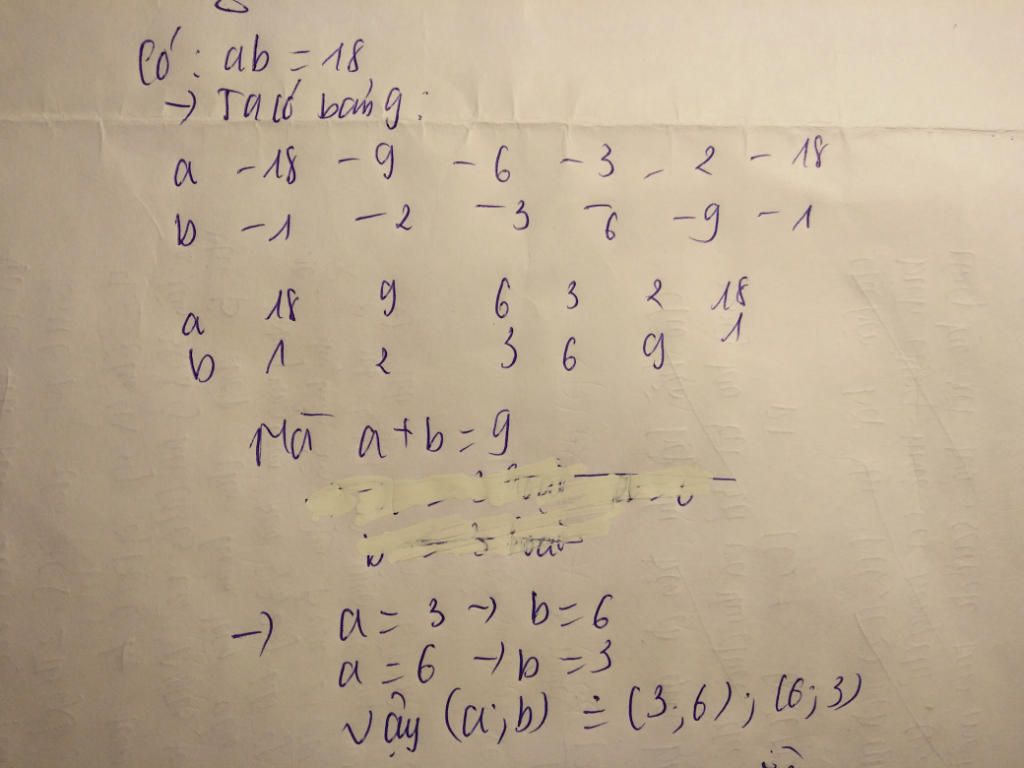 Có: ab = 18
→ Ta có bảng:
a -18 -9 -6 -3 -2 -18
b -1 -2 -3 -6 -9 -1
a 18 9 6 3 2 18
b 1 2 3 6 9 1
Mà a+b=9
→ a = 3 → b = 6
a = 6 → b = 3
Vậy (a;b) = (3;6); (6;3)